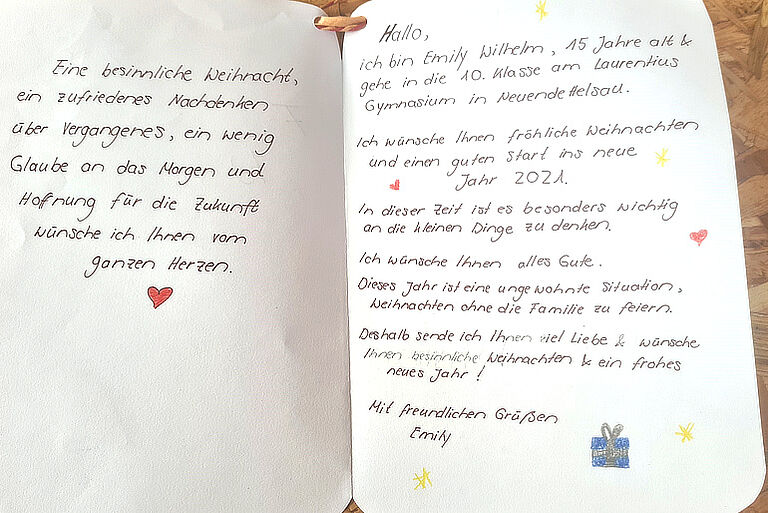 Eine besinnliche Weihnacht,
ein zufriedenes Nachdenken
über Vergangenes, ein wenig
Glaube an das Morgen und
Hoffnung für die Zukunft
wünsche ich Ihnen vom
ganzen Herzen.
Hallo,
ich bin Emily Wilhelm, 15 Jahre alt &
gehe in die 10. Klasse am Laurentius
Gymnasium in Neuendettelsau.
Ich wünsche Ihnen fröhliche Weihnachten
und einen guten Start ins neue
Jahr 2021.
In dieser Zeit ist es besonders wichtig
an die kleinen Dinge zu denken.
Ich wünsche Ihnen alles Gute.
Dieses Jahr ist eine ungewohnte Situation,
Weihnachten ohne die Familie zu feiern.
Deshalb sende ich Ihnen viel Liebe & wünsche
Ihnen besinnliche Weihnachten & ein frohes
neues Jahr!
Mit freundlichen Grüßen
Emily